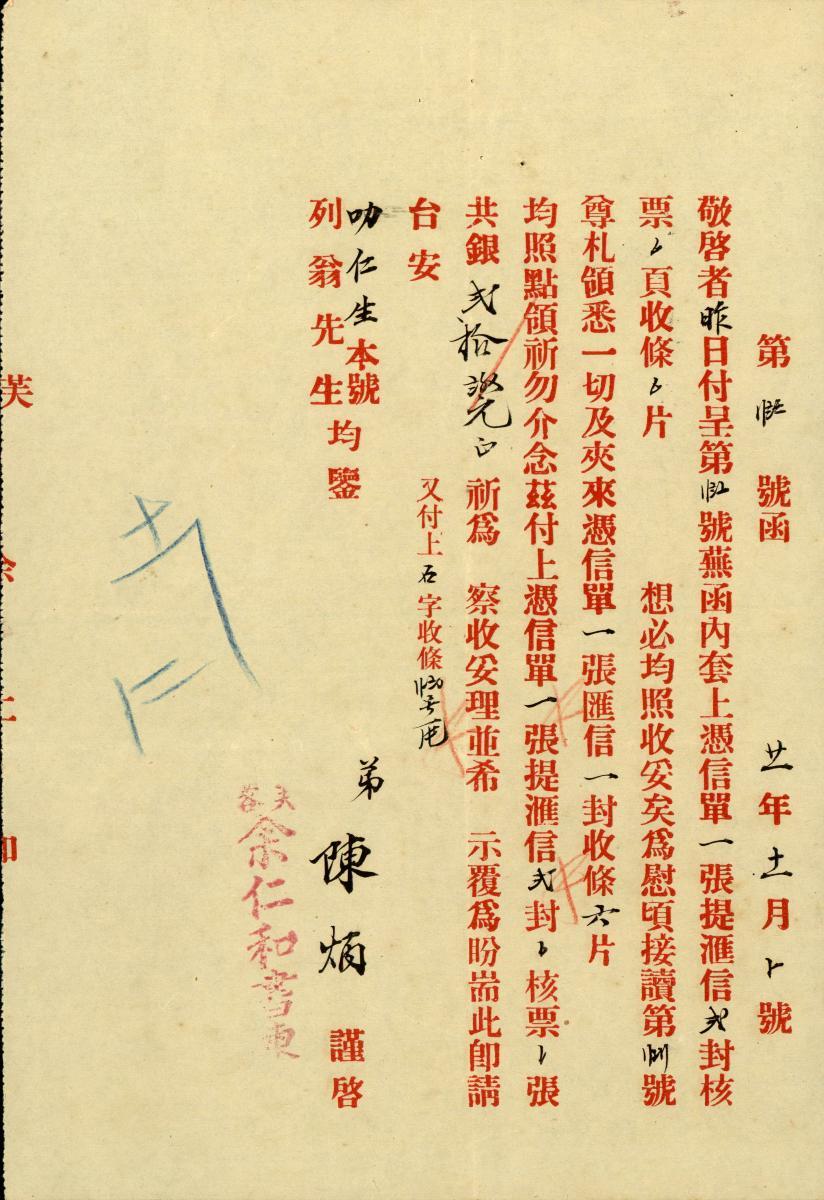 第 號函 廿一年十一月卜號
敬啓者昨日付呈第 號蕪函內套上憑信單一張提滙信弍封核
票 頁收條 片 想必均照收妥矣爲慰頃接讀第 號
尊札領悉一切及夾來憑信單一張匯信一封收條六片
均照點領祈勿介念茲付上憑信單一張提滙信弍封 核票 張
共銀弍拾 元正 祈爲 察收妥理並希 示覆爲盼耑此卽請
台安 又付上石字收條
叻仁生本號
列翁先生均鑒
弟 陳炳 謹啓
芙蓉
余仁和書柬
芙 余 仁 和